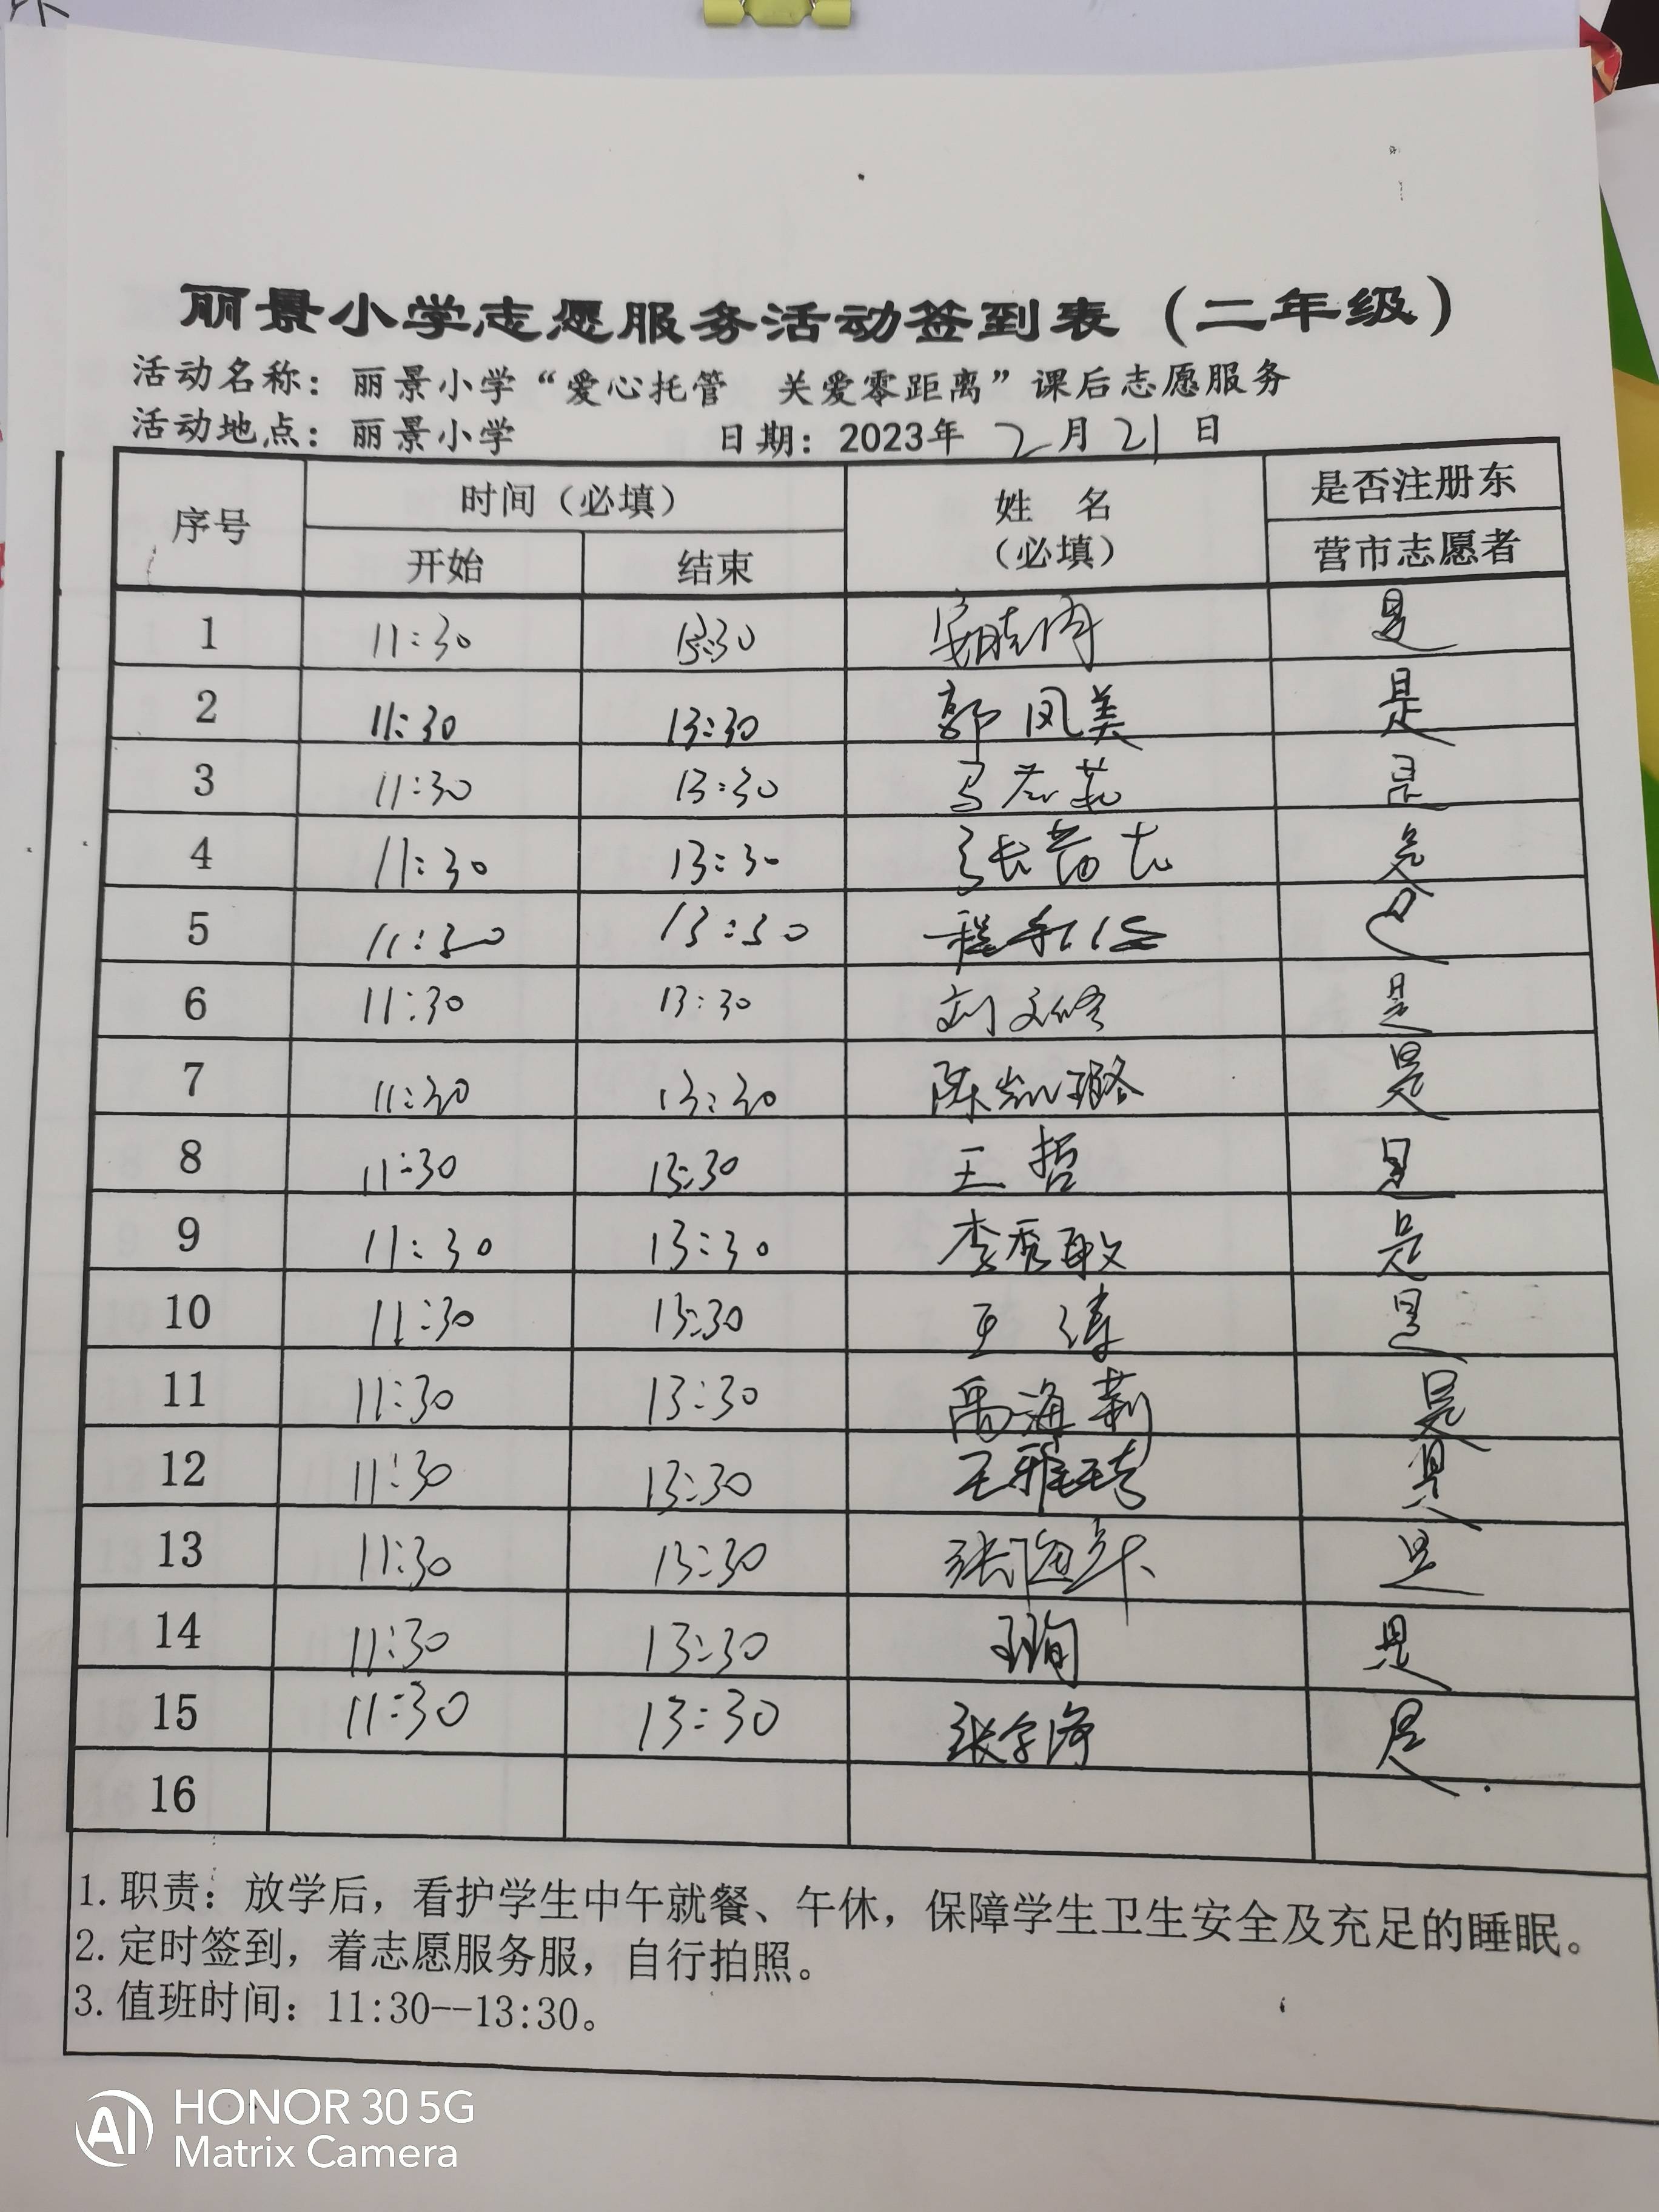 丽景小学志愿服务活动签到表（二年级）
活动名称：丽景小学“爱心托管 关爱零距离”课后志愿服务
活动地点：丽景小学 日期：2023年 2月 21日
序号 时间（必填） 姓名（必填） 是否注册东营市志愿者
开始 结束
1 11:30 13:30 是
2 11:30 13:30 郭凤美 是
3 11:30 13:30 是
4 11:30 13:30 是
5 11:30 13:30 是
6 11:30 13:30 是
7 11:30 13:30 陈凯璐 是
8 11:30 13:30 王哲 是
9 11:30 13:30 李秀敏 是
10 11:30 13:30 王涛 是
11 11:30 13:30 禹海莉 是
12 11:30 13:30 王雅琦 是
13 11:30 13:30 是
14 11:30 13:30 是
15 11:30 13:30 是
16
1. 职责：放学后，看护学生中午就餐、午休，保障学生卫生安全及充足的睡眠。
2. 定时签到，着志愿服务服，自行拍照。
3. 值班时间：11:30--13:30。
AI HONOR 30 5G
Matrix Camera